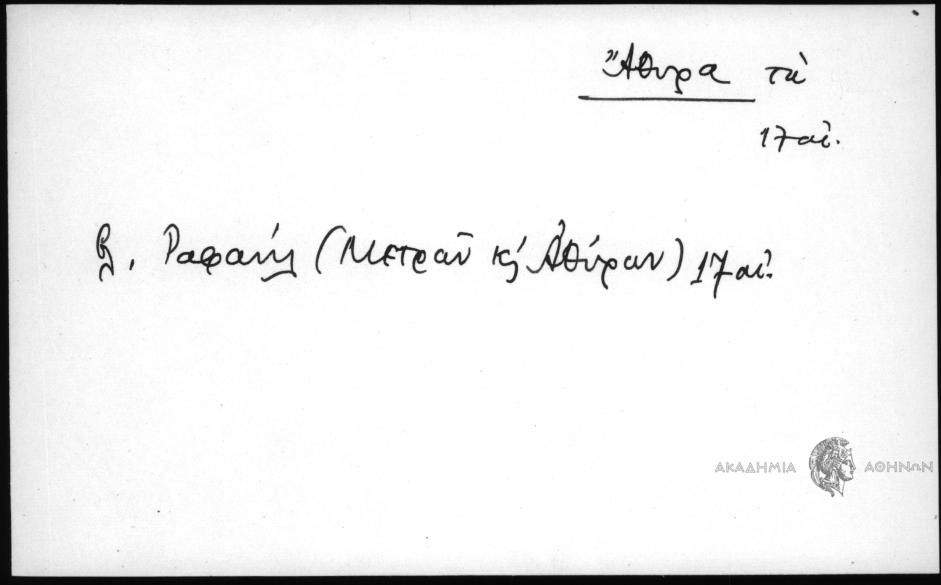 Ἄθυρα τὰ
17 αἰ.
β. Ραφαήλ (Μετρῶν κ' Ἀθύρων) 17 αἰ.
ΑΚΑΔΗΜΙΑ ΑΘΗΝΩΝ